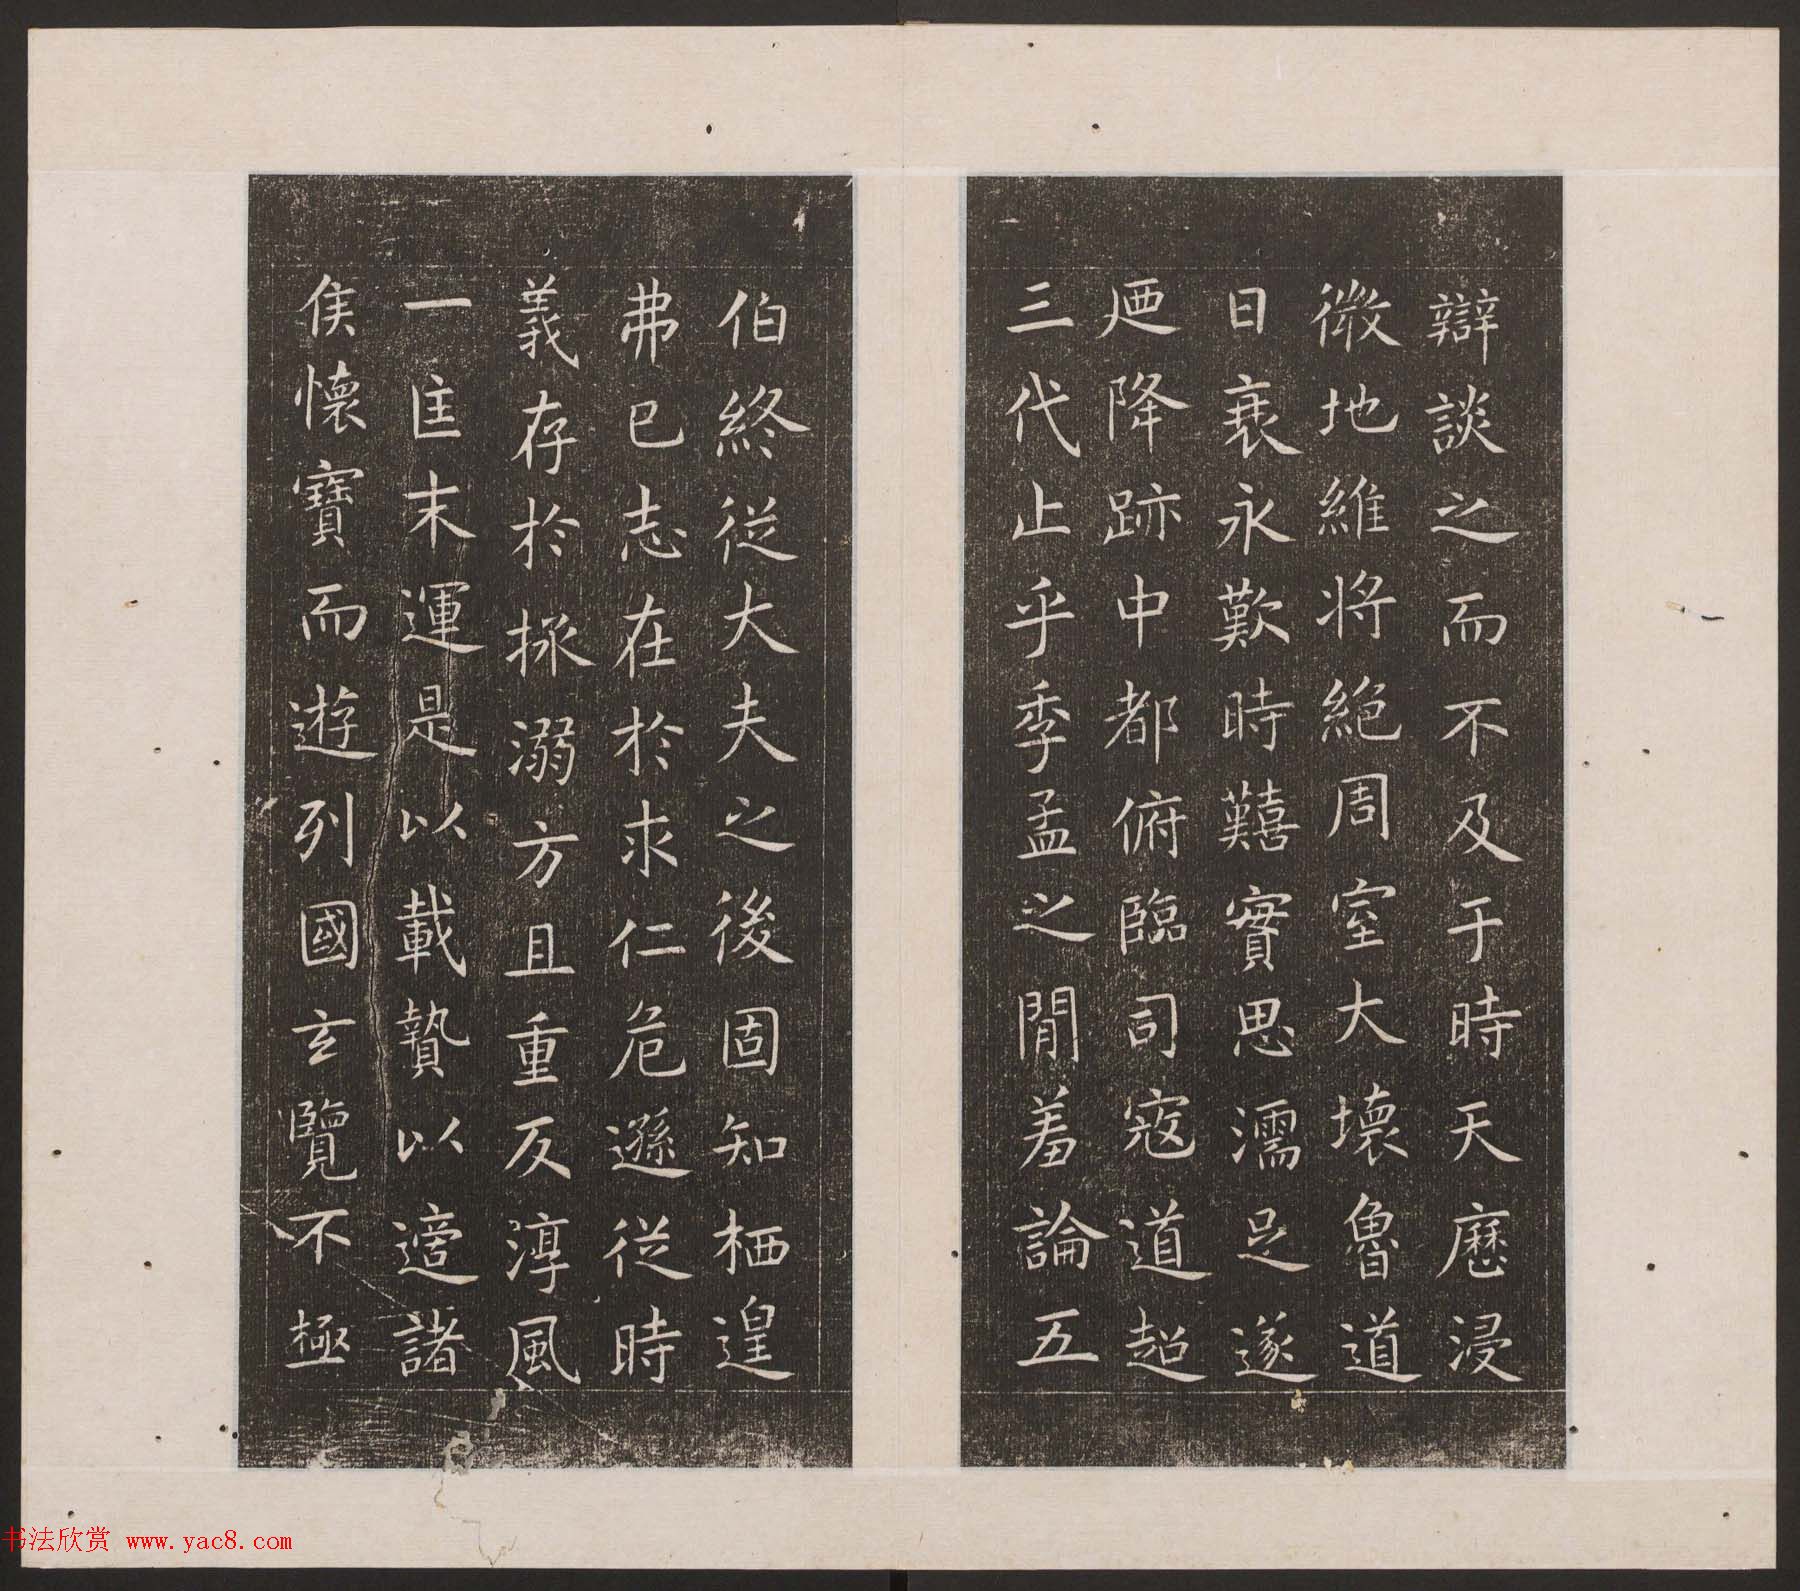 辯談之而不及于時天曆浸
微地維將絕周室大壞魯道
日衰永歎時艱實思濡足遂
迺降跡中都俯臨司寇道超
三代止乎季孟之閒羞論五
伯終從大夫之後固知栖遑
弗已志在於求仁危遜從時
義存於拯溺方且重反淳風
一匡末運是以載贄以適諸
侯懷寶而遊列國玄覽不極
书法欣赏 www.yac8.com